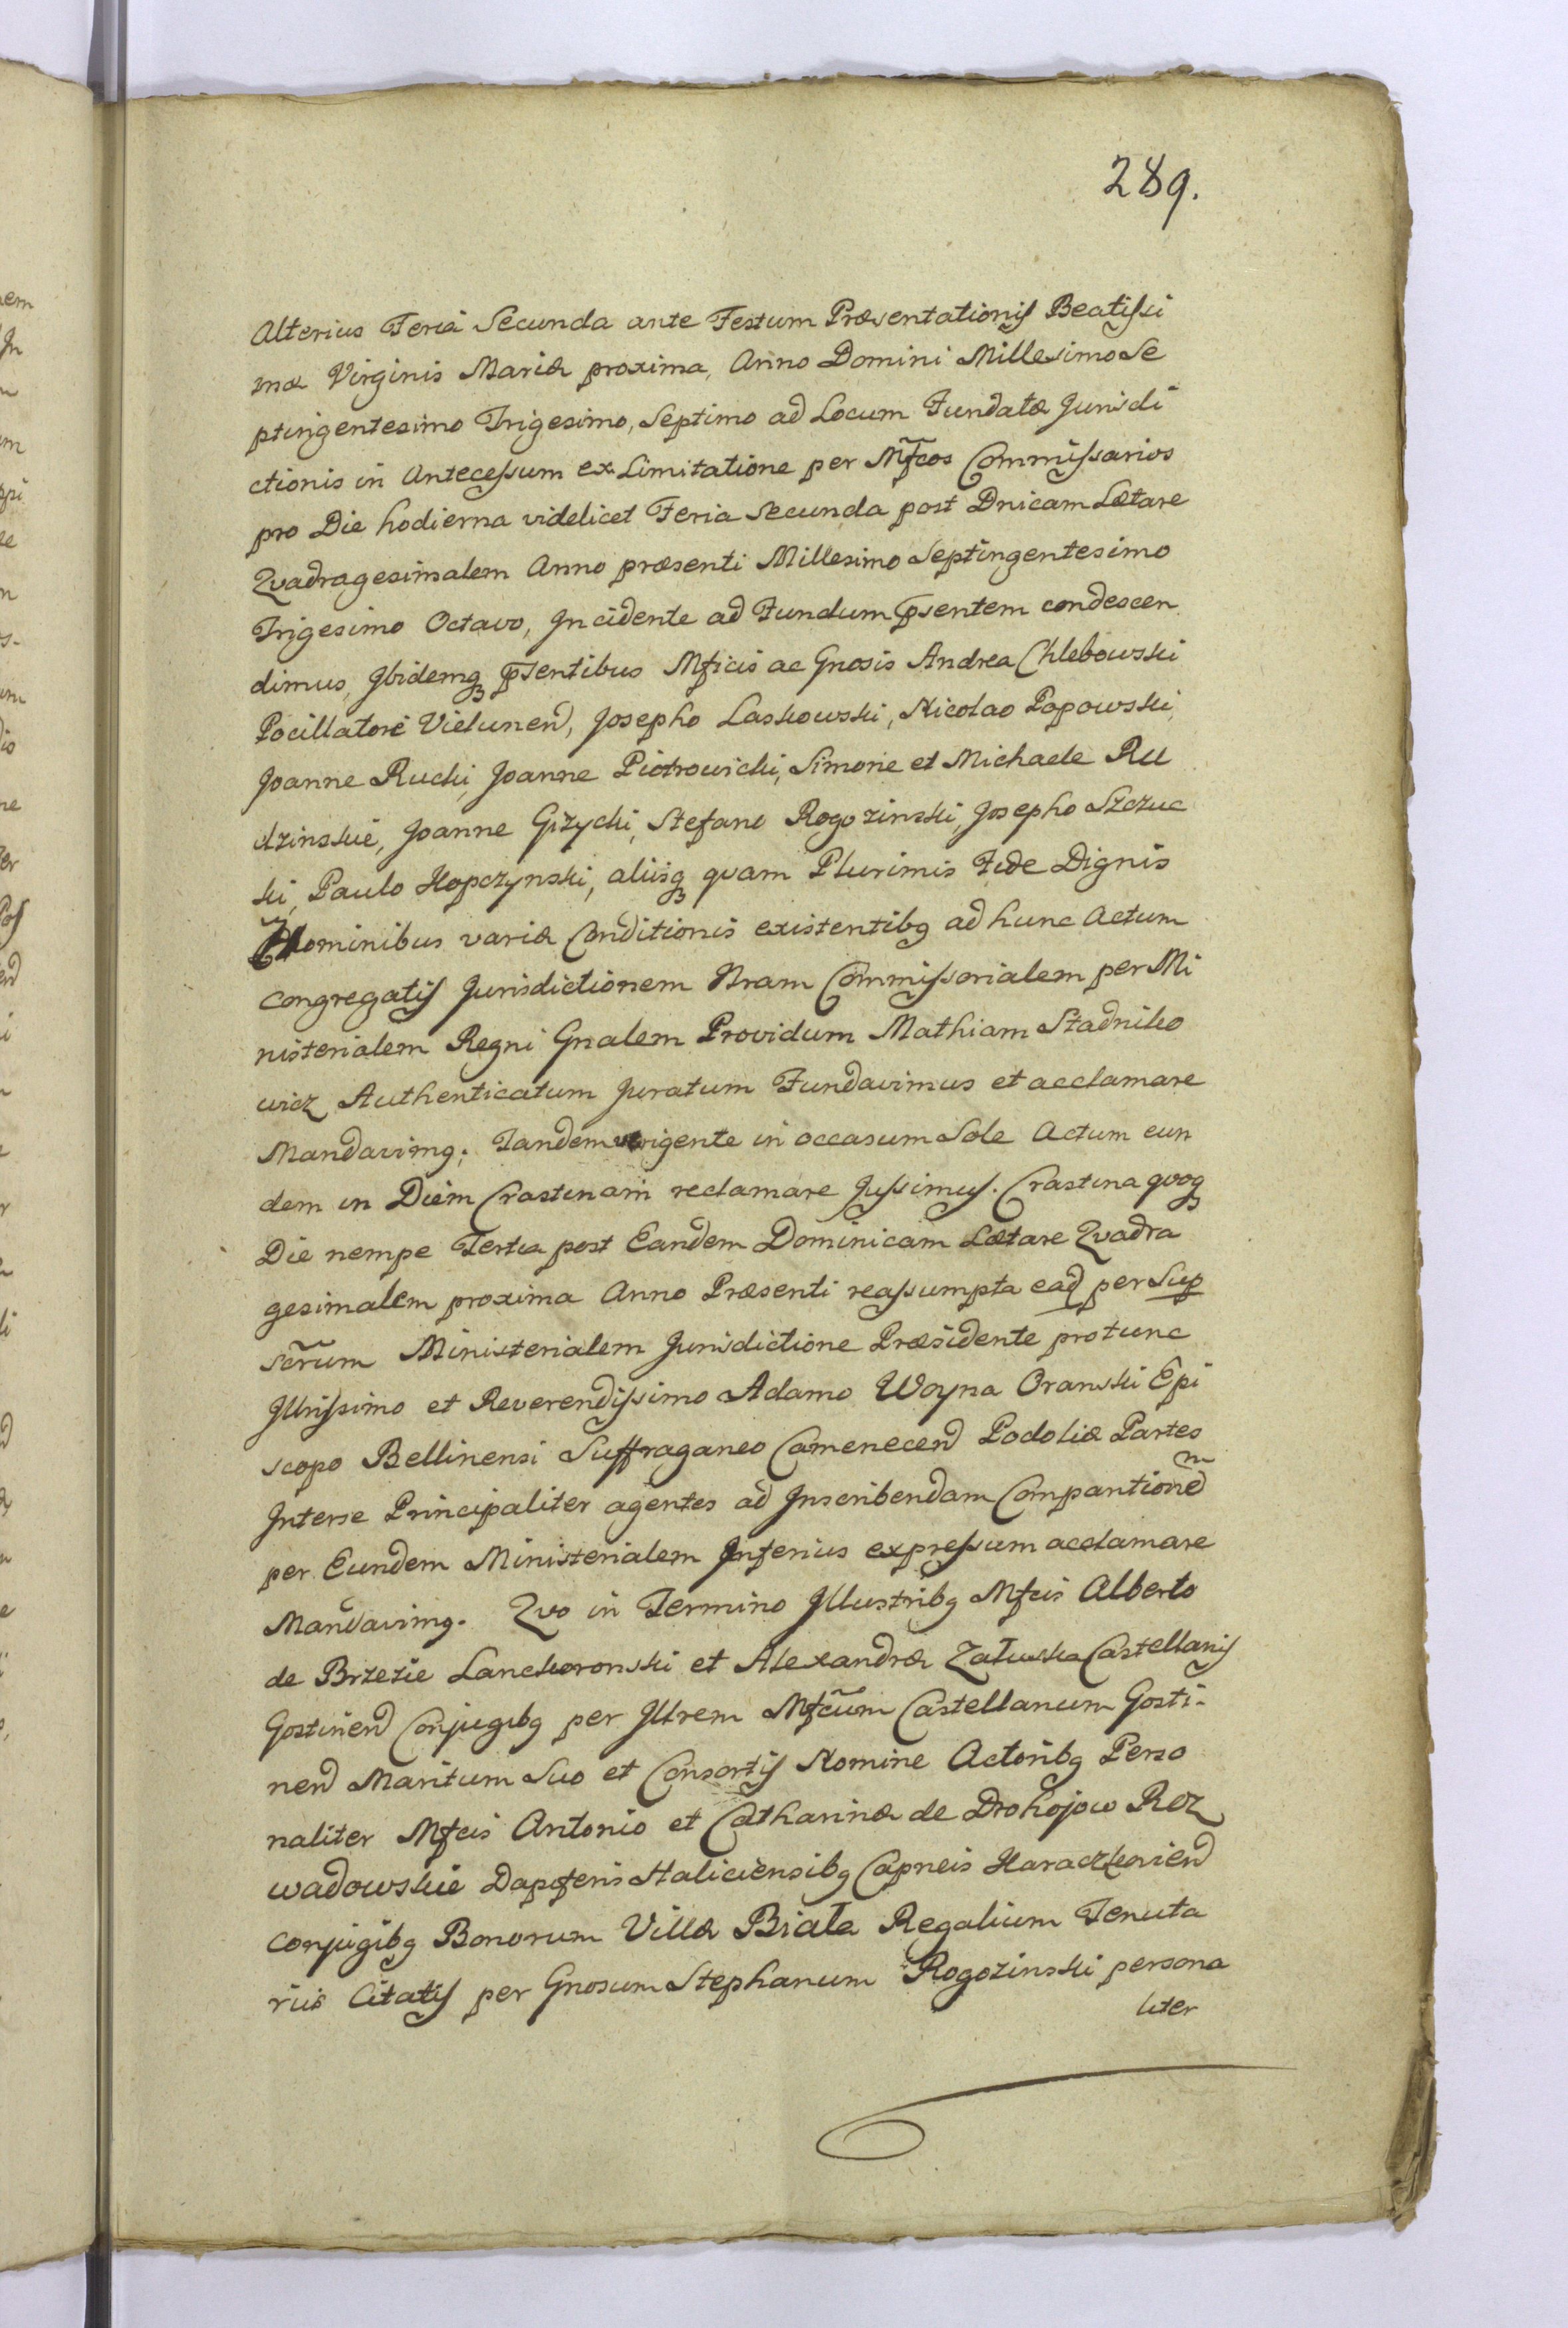 289.
Alterius Feria Secunda ante Festum Præsentationis Beatissi
mæ Virginis Mariæ proxima, Anno Domini Millesimo Se
ptingentesimo Trigesimo, Septimo ad Locum Fundatæ Jurisdi
ctionis in Antecessum ex Limitatione per Mfcos Commissarios
pro Die hodierna videlicet Feria Secunda post Dnicam Lætare
Qvadragesimalem Anno præsenti Millesimo Septingentesimo
Trigesimo Octavo, Incidente ad Fundum psentem condescen
dimus, Ibidemq psentibus Mficis ac Gnosis Andrea Chlebowski
Pocillatore Vielunen, Josepho Laskowski, Nicolao Popowski,
Joanne Rucki, Joanne Piotrowicki, Simone et Michaele Ru
dzinskie, Joanne Gizycki, Stefano Rogozinski, Josepho Szczuc
ki, Paulo Kopczynski, aliisq qvam Plurimis Fide Dignis
Hominibus variæ Conditionis existentibq ad hunc Actum
congregatis Jurisdictionem Nram Commissorialem per Mi
nisterialem Regni Gnalem Providum Mathiam Stadniko
wicz Authenticatum Juratum Fundavimus et acclamare
Mandavimq. Tandem vergente in occasum Sole Actum eun
dem in Diem Crastinam reclamare Jussimus. Crastina qvoq
Die nempe Tertia post Eandem Dominicam Lætare Qvadra
gesimalem proxima Anno Præsenti reassumpta ead per Sup
scrum Ministerialem Jurisdictione Præsidente protunc
Illrissimo et Reverendissimo Adamo Woyna Oranski Epi
scopo Bellinensi Suffraganeo Camenecen Podoliæ Partes
Interse Principaliter agentes ad Inscribendam Comparitionem
per Eundem Ministerialem Inferius expressum acclamare
Mandavimq. Qvo in Termino Illustribq Mfcis Alberto
de Brzezie Lanckoronski et Alexandra Załuska Castellanis
Gostinen Conjugibq per Illrem Mfcum Castellanum Gosti-
nen Maritum Suo et Consortis Nomine Actoribq Perso
naliter Mfcis Antonio et Catharina de Drohojow Roz
wadowskie Dapiferis Haliciensibq Capneis Haraczkovien
conjugibq Bonorum Villæ Biała Regalium Tenuta
riis Citatis per Gnosum Stephanum Rogozinski persona
liter